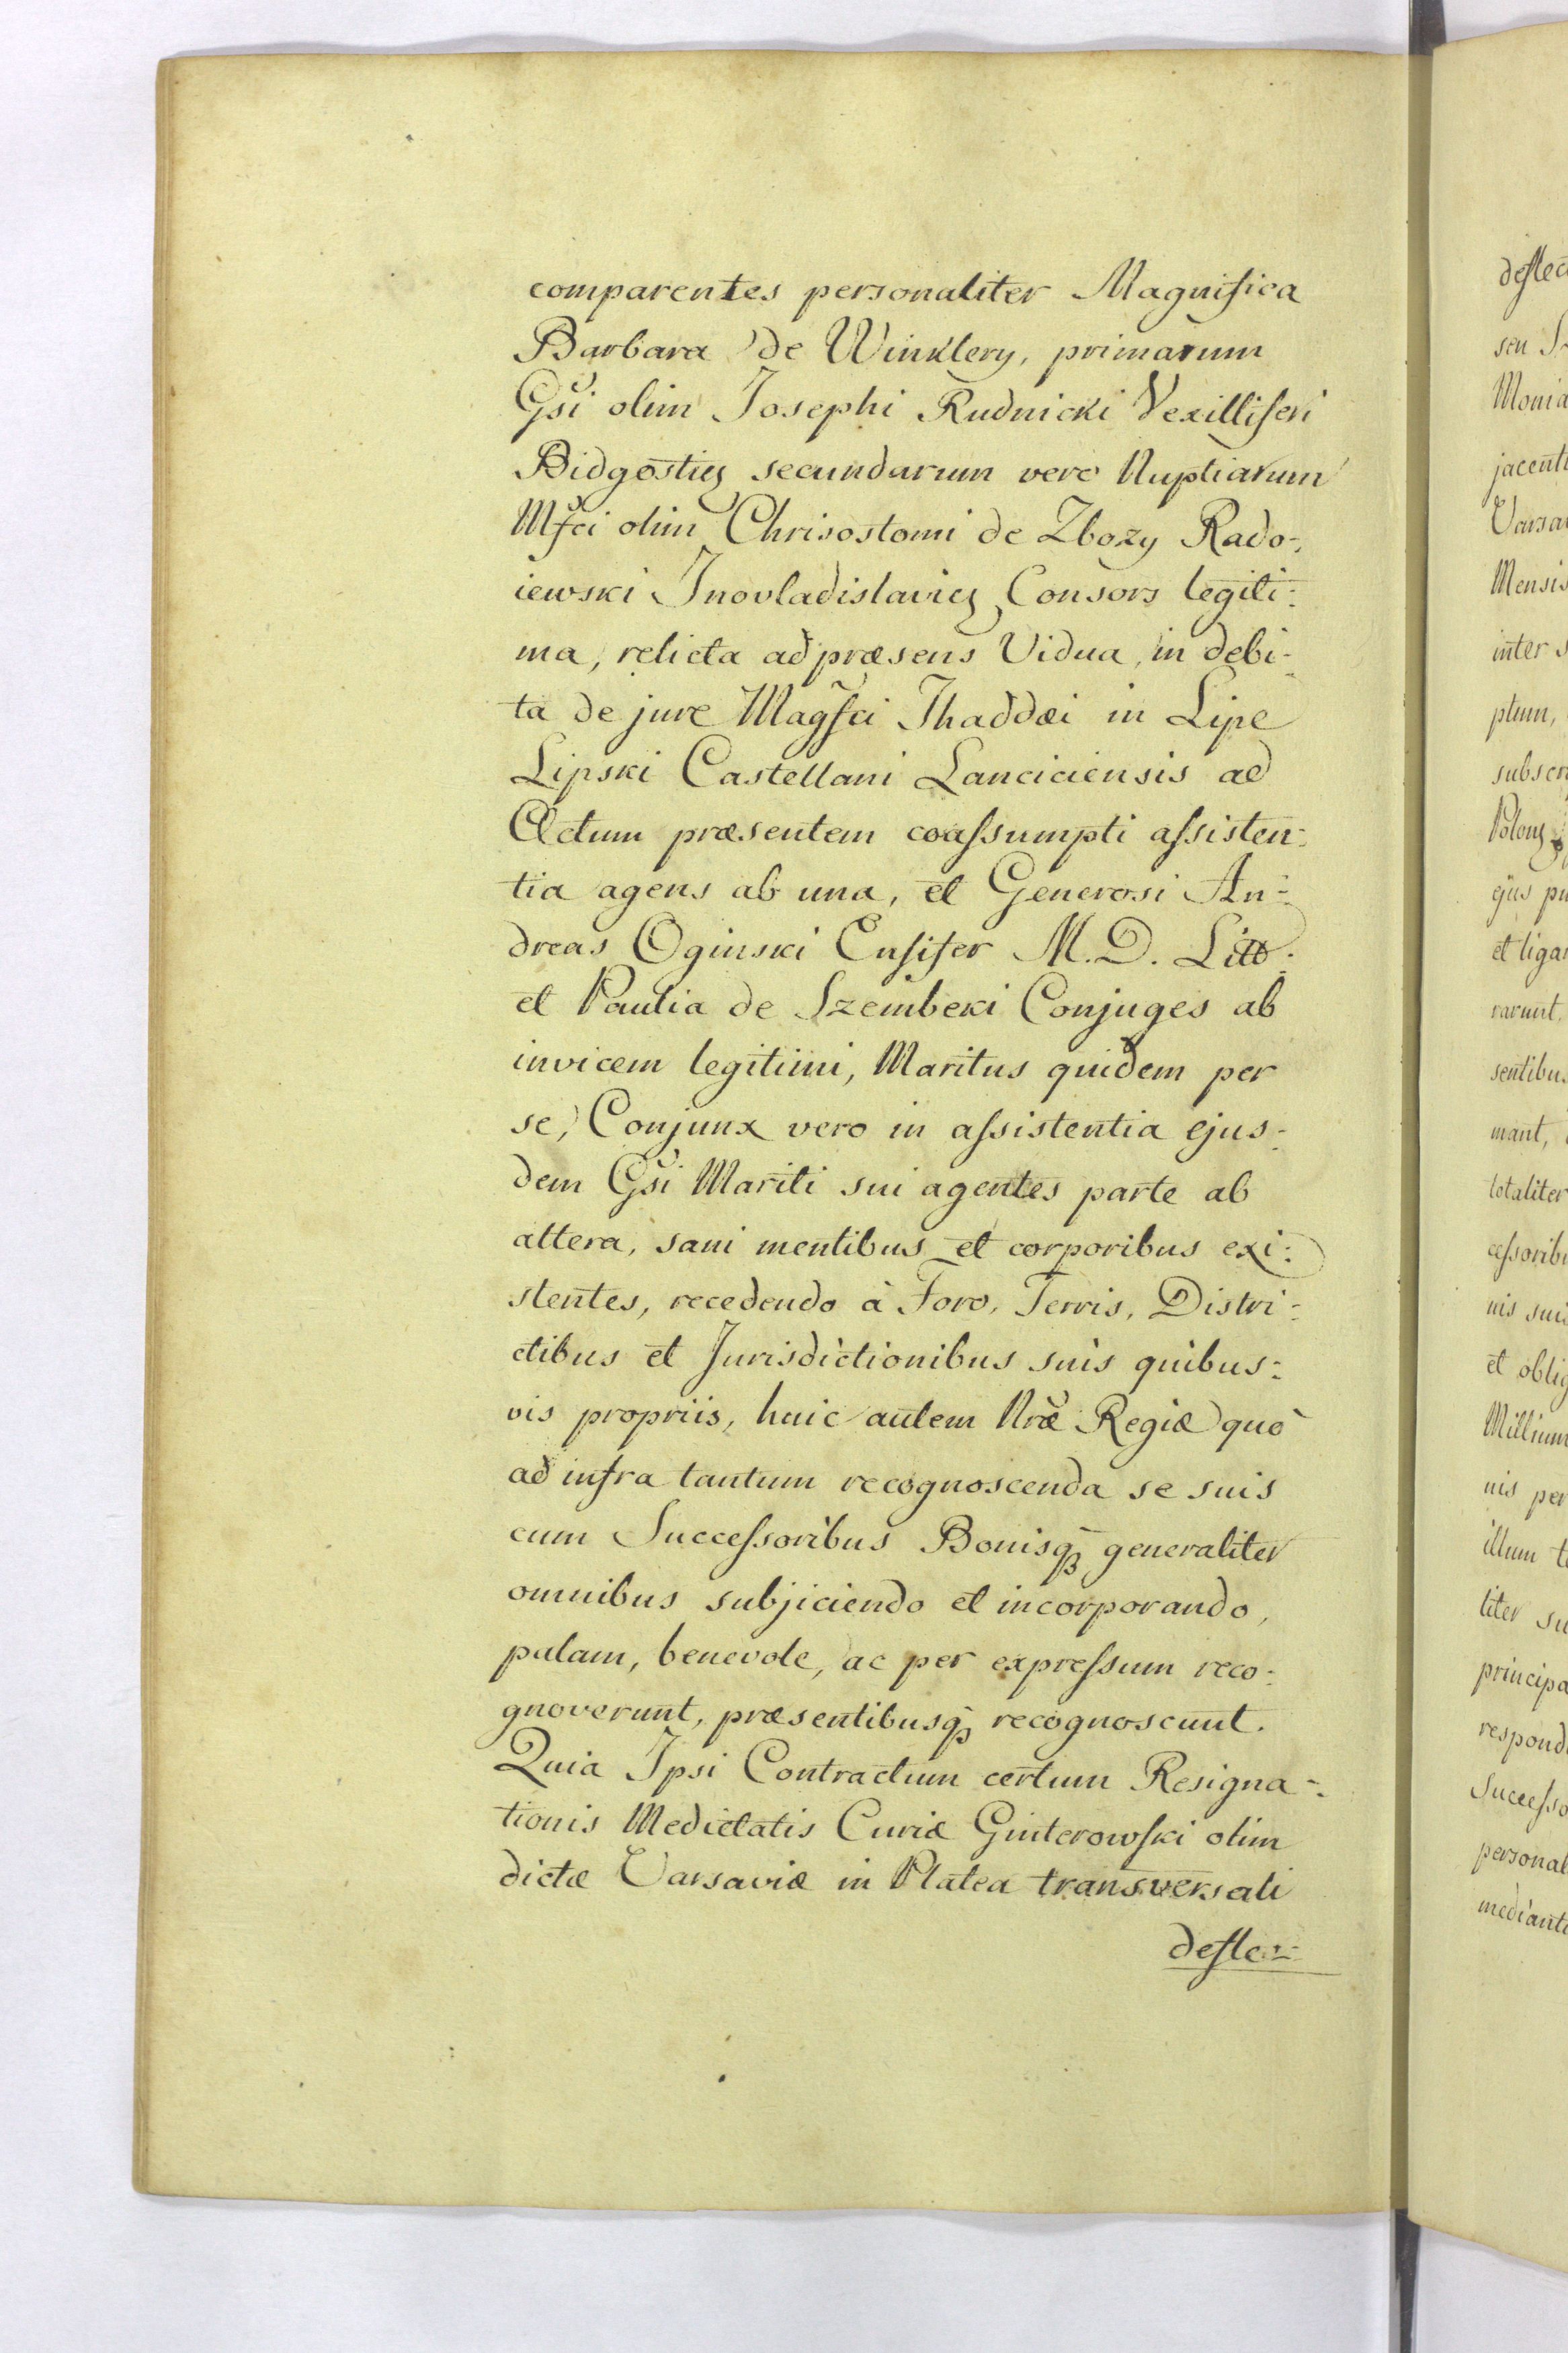 comparentes personaliter Magnifica
Barbara de Winklery, primarum
Gsi olim Josephi Rudnicki Vexilliferi
Bidgostien secundarum vero Nuptiarum
Mfci olim Chrisostomi de Zbozy Rado-
iewski Inovladislavien Consors legiti-
ma, relicta ad præsens Vidua, in debi-
ta de jure Magfci Thaddæi in Lipe
Lipski Castellani Lanciciensis ad
Actum præsentem coassumpti assisten-
tia agens ab una, et Generosi An-
dreas Oginski Ensifer M. D. Litt:
et Paulia de Szembeki Conjuges ab
invicem legitimi, Maritus quidem per
se, Conjunx vero in assistentia ejus-
dem Gsi Mariti sui agentes parte ab
altera, sani mentibus et corporibus exi-
stentes, recedendo à Foro, Terris, Distri-
ctibus et Jurisdictionibus suis quibus-
vis propriis, huic autem Nræ Regiæ quò
ad infra tantum recognoscenda se suis
cum Successoribus Bonisq generaliter
omnibus subjiciendo et incorporando,
palam, benevole, ac per expressum reco-
gnoverunt, præsentibusq recognoscunt.
Quia Ipsi Contractum certum Resigna-
tionis Medietatis Curiæ Ginterowski olim
dictæ Varsaviæ in Platea transversali
deflec-
deflec
seu
Monia
jacent
Varsa
Mensis
inter
ptum,
subscr
Polon
ejus
et liga
rarunt
sentibus
mant,
totaliter
cessoribu
nis sui
et oblig
Millium
nis per
illum
liter su
principa
respond
Successo
personal
mediant